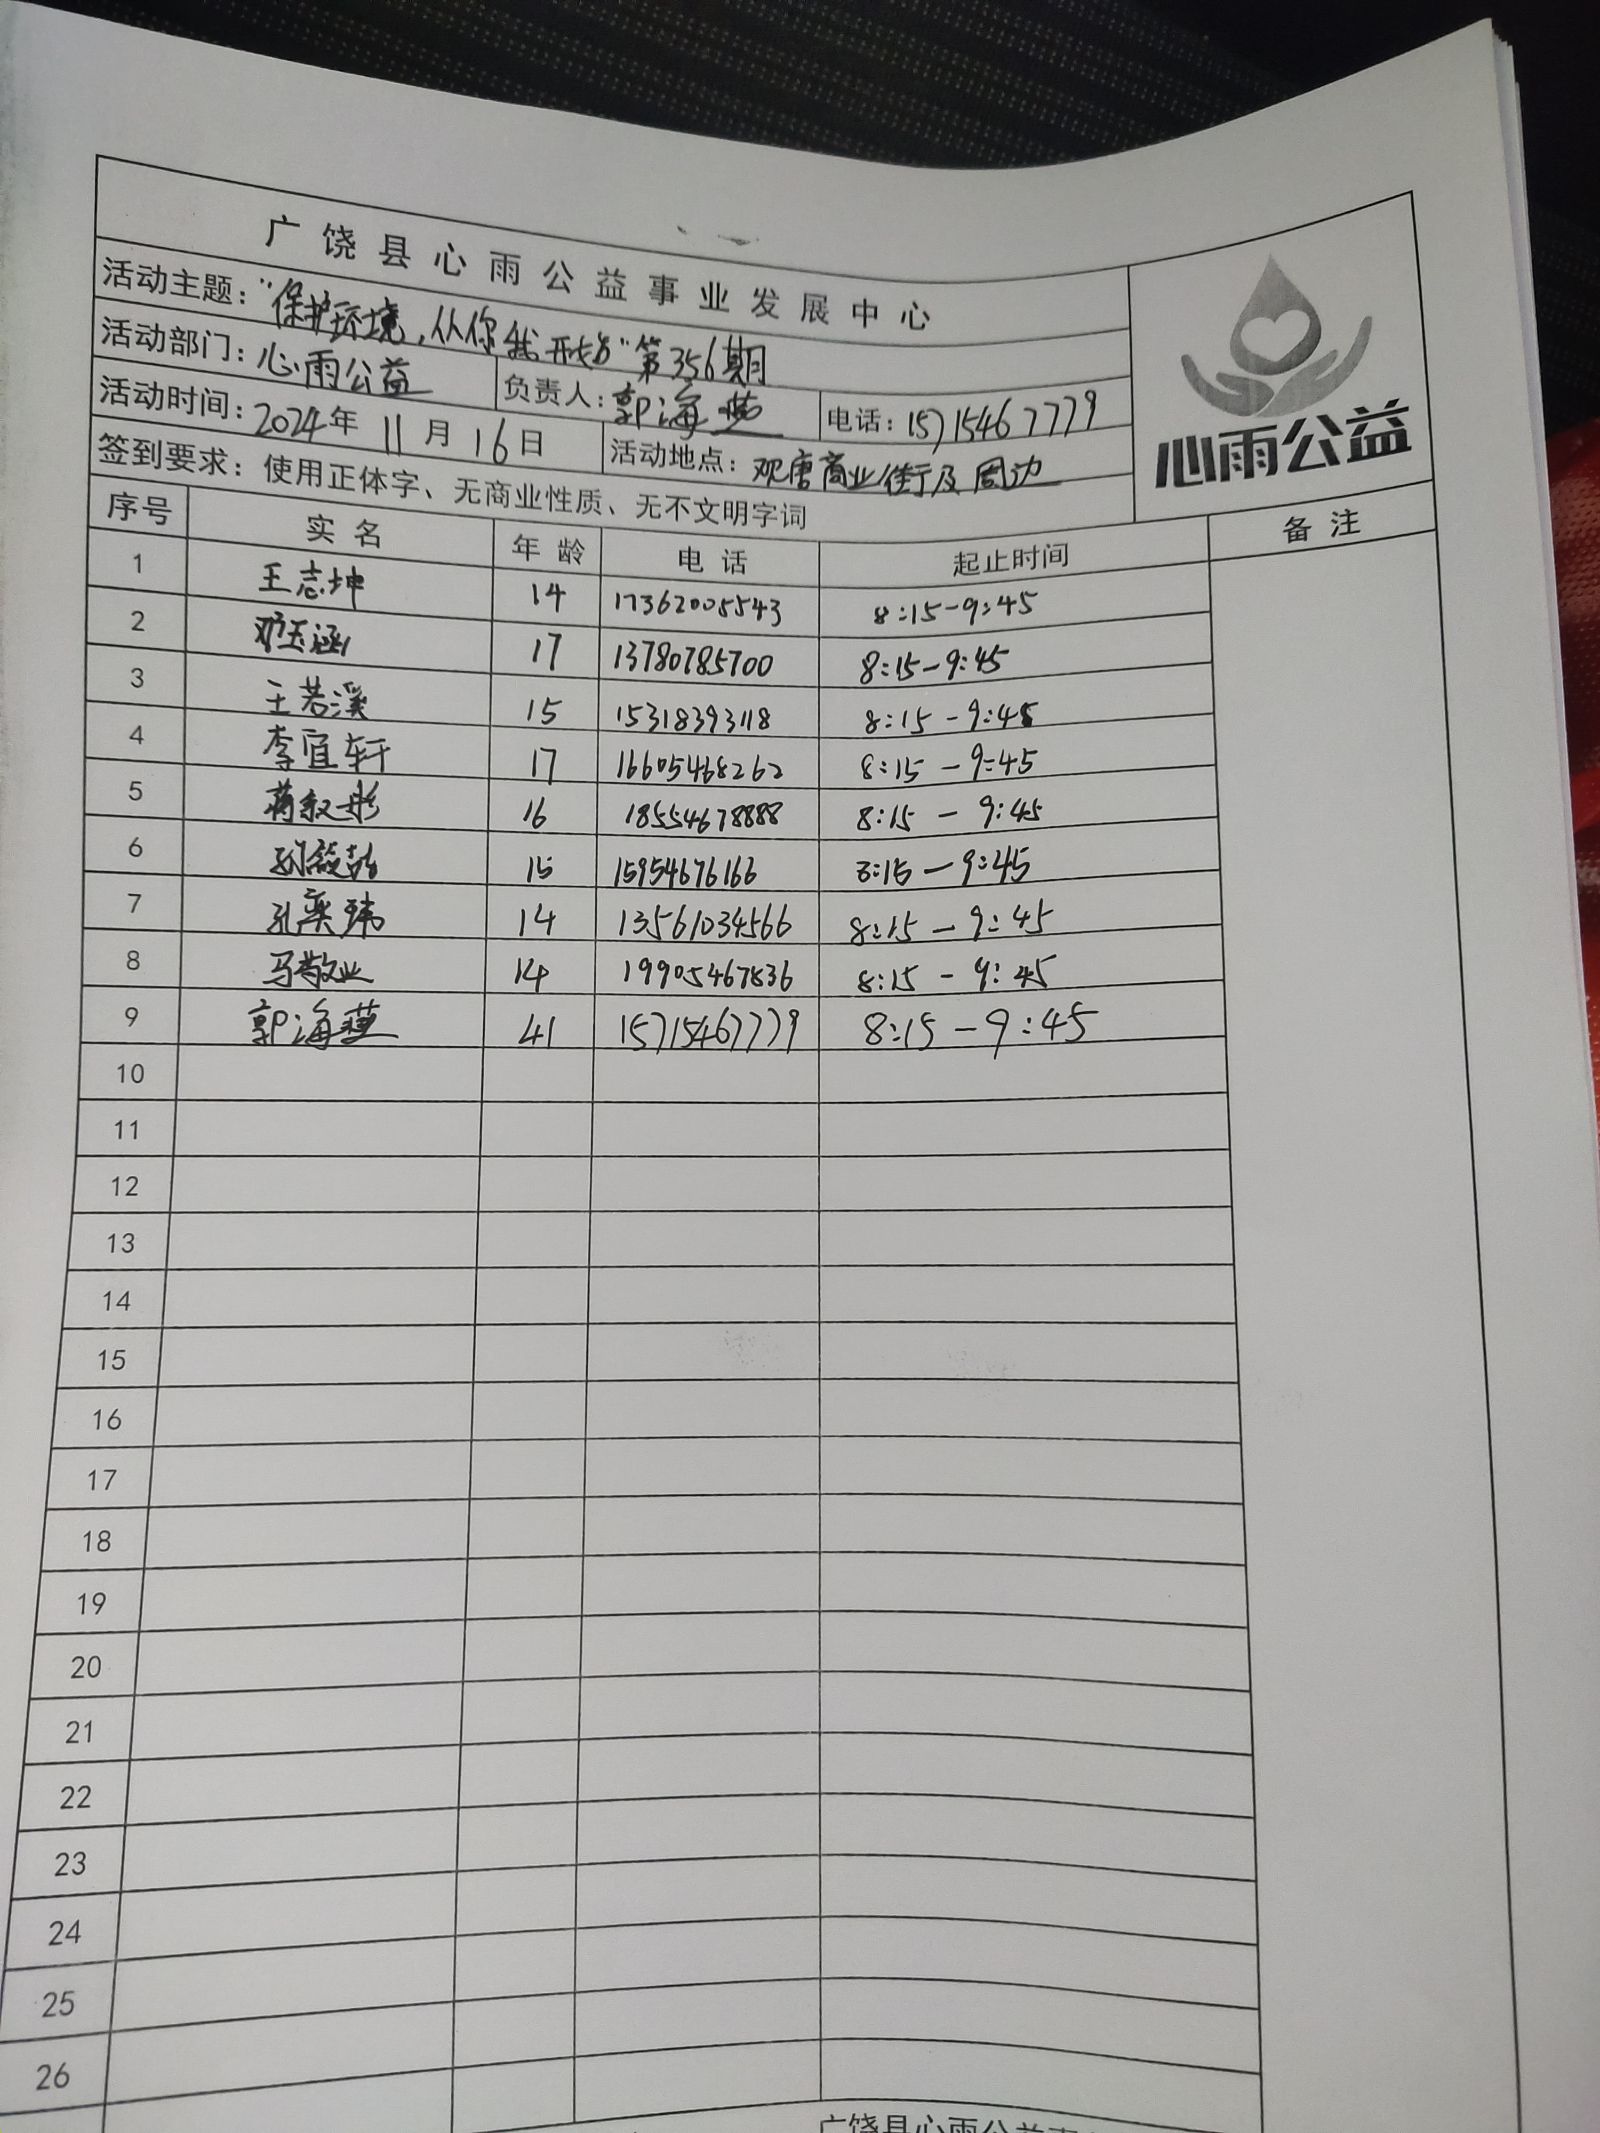 广饶县心雨公益事业发展中心
活动主题："保护环境，从你我开始"第356期
活动部门：心雨公益 负责人：郭海燕 电话：15715467779
活动时间：2024年11月16日 活动地点：观唐商业街及周边
签到要求：使用正体字、无商业性质、无不文明字词
心雨公益
序号 实名 年龄 电话 起止时间 备注
1 王志坤 14 17362005543 8:15-9:45
2 邓玉涵 17 13780785700 8:15-9:45
3 王若溪 15 15318393118 8:15-9:45
4 李宜轩 17 16605468262 8:15-9:45
5 蒋叙彤 16 18554678888 8:15-9:45
6 15 15954676166 8:15-9:45
7 孔奕玮 14 13561034566 8:15-9:45
8 马敬业 14 19905467836 8:15-9:45
9 郭海燕 41 15715467779 8:15-9:45
10
11
12
13
14
15
16
17
18
19
20
21
22
23
24
25
26
广饶县心雨公益事